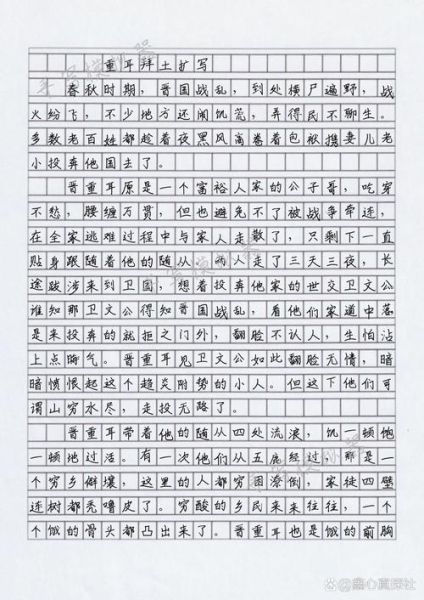 重耳拜土扩写
春秋时期，晋国战乱，到处横尸遍野，战
火纷飞，不少地方还闹饥荒，弄得民不聊生。
多数老百姓都趁着夜黑风高卷着包袱携妻儿老
小投奔他国去了。
晋重耳原是一个富裕人家的公子哥，吃穿
不愁，腰缠万贯，但也避免不了被战争牵连，
在全家逃难过程中与家人走散了，只剩下一直
贴身跟随着他的随从。两人走了三天三夜，长
途跋涉来到卫国，想着投奔他家的世交卫文公
谁知那卫文公得知晋国战乱，看他们家道中落
是来投奔的就拒之门外，翻脸不认人，生怕沾
上点晦气。晋重耳见卫文公如此翻脸无情，暗
暗愤恨起这个趋炎附势的小人。但这下他们可
谓山穷水尽，走投无路了。
晋重耳带着他的随从四处流浪，饥一顿饱
一顿地过活。有一次他们从五鹿经过，那是一
个穷乡僻壤，这里的人都穷困潦倒，家徒四壁
连树都秃噜皮了。穷酸的乡民来来往往，一个
个饿的骨头都凸出来了。晋重耳也是饿的前胸
手写模拟器
手写模拟器
手写模拟器
@童心真探社